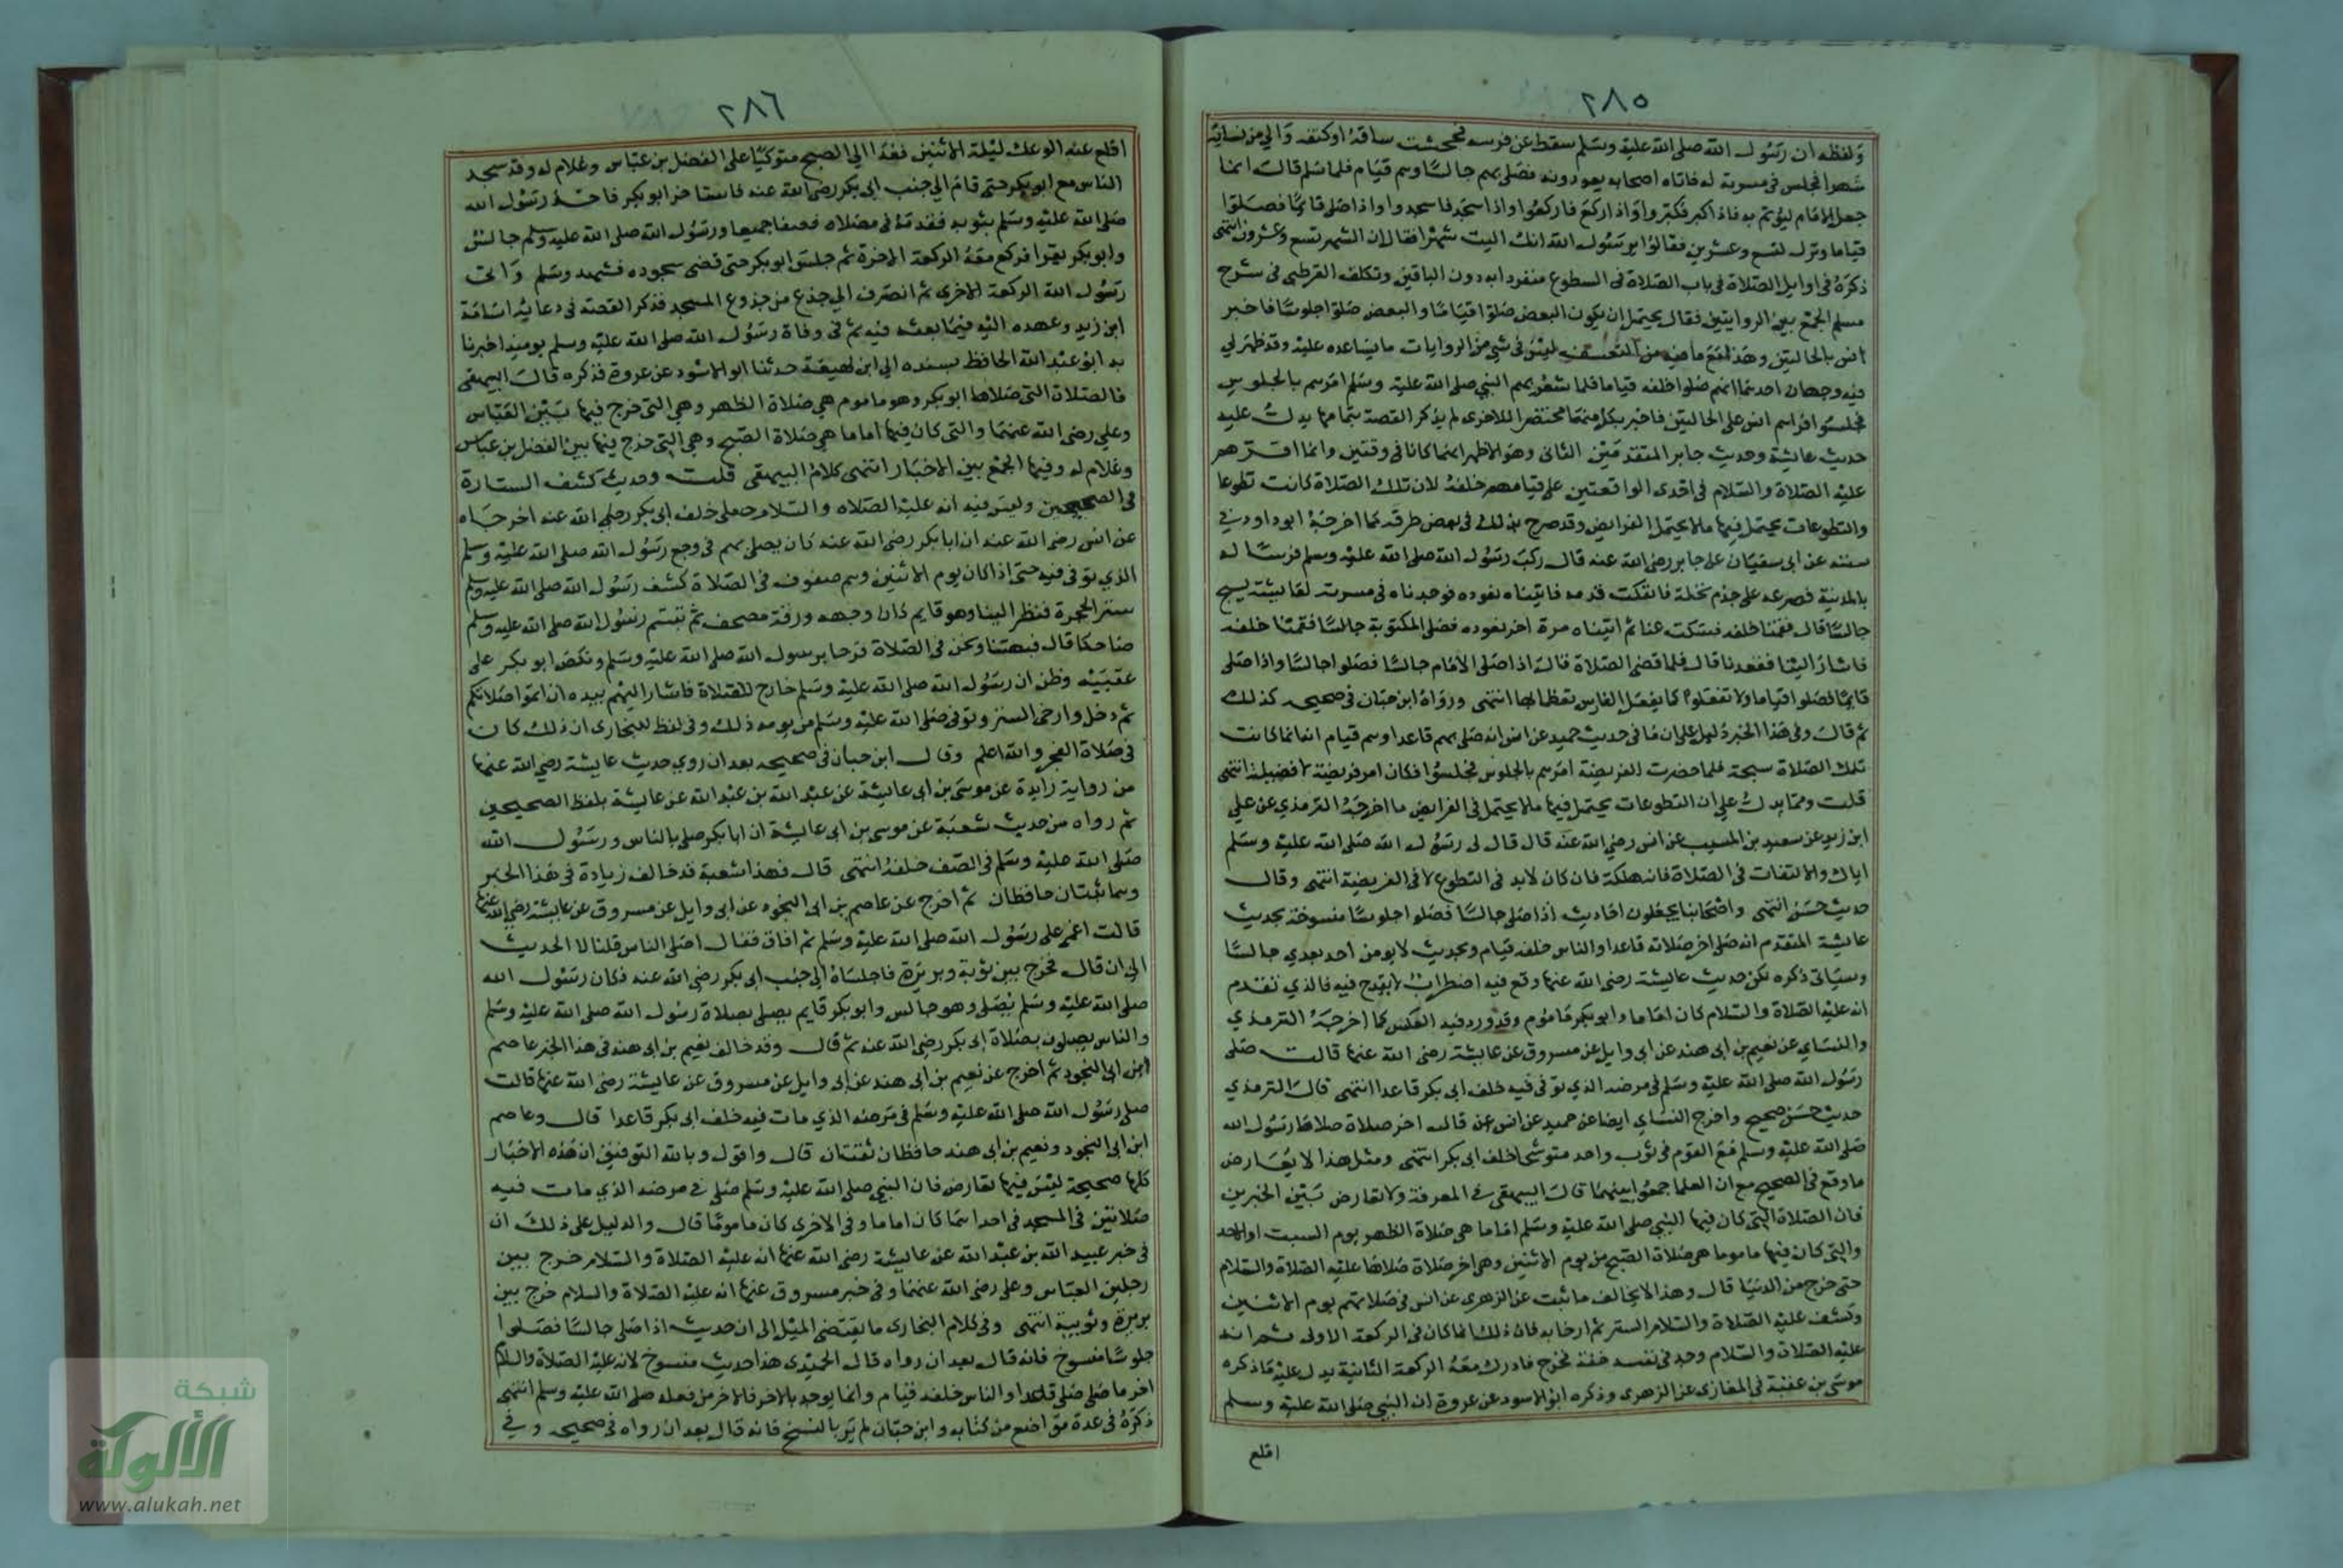 ٢٨٥
ولفظه ان رسول الله صلى الله عليه وسلم سقط عن فرسه فجحشت ساقه اوكتفه وآلي من نسائه
شهرا فجلس في مسربة له فاتاه اصحابه يعودونه فصلى بهم جالسا وهم قيام فلما سلم قال انما
جعل الامام ليؤتم به فاذا كبر فكبروا واذا ركع فاركعوا واذا سجد فاسجدوا واذا صلى قائما فصلوا
قياما ونزل لتسع وعشرين فقالوا يرسول الله انك اليت شهرا فقال ان الشهر تسع وعشرون انتهى
ذكره في اوايل الصلاة في باب الصلاة في السطوح منفردا به دون الباقين وتكلف القرطبي في شرح
مسلم الجمع بين الروايتين فقال يحتمل ان يكون البعض صلوا قياما والبعض صلوا جلوسا فاخبر
انس بالحالتين وهذا مع ما فيه من التعسف ليس في شيء من الروايات ما يساعده عليه وقد ظهر لي
فيه وجهان احدهما انهم صلوا خلفه قياما فلما شعر بهم النبي صلى الله عليه وسلم امرهم بالجلوس
فجلسوا فراهم انس على الحالتين فاخبر بكل منهما مختصرا للاخرى لم يذكر القصة بتمامها يدل عليه
حديث عايشة وحديث جابر المتقدمين الثاني وهو الاظهر انهما كانا في وقتين وانما اقرهم
عليه الصلاة والسلام في احدى الواقعتين على قيامهم خلفه لان تلك الصلاة كانت تطوعا
والتطوعات يحتمل فيها ما لا يحتمل الفرايض وقد صرح بذلك في بعض طرقه كما اخرجه ابو داود في
سننه عن ابي سفيان عن جابر رضي الله عنه قال ركب رسول الله صلى الله عليه وسلم فرسا له
بالمدينة فصرعه على جذم نخلة فانفكت قدمه فاتيناه نعوده فوجدناه في مسربة لعايشة يسبح
جالسا قال فقمنا خلفه فسكت عنا ثم اتيناه مرة اخر نعوده فصلى المكتوبة جالسا فقمنا خلفه
فاشار الينا فقعدنا قال فلما قضى الصلاة قال اذا صلى الامام جالسا فصلوا جالسا واذا صلى
قايما فصلوا قياما ولا تفعلوا كما يفعل الفارس بعظمائها انتهى ورواه ابن حبان في صحيحه كذلك
ثم قال وفي هذا الخبر دليل على ان ما في حديث حميد عن انس انه صلى بهم قاعدا وهم قيام انما كانت
تلك الصلاة سبحة فلما حضرت الفريضة امرهم بالجلوس فجلسوا فكان امر فريضة لا فضيلة انتهى
قلت ومما يدل على ان التطوعات يحتمل فيها ما لا يحتمل في الفرايض ما اخرجه الترمذي عن علي
ابن زيد عن سعيد بن المسيب عن انس رضي الله عنه قال قال لي رسول الله صلى الله عليه وسلم
اياك والالتفات في الصلاة فانه هلكة فان كان لابد في التطوع لا في الفريضة انتهى وقال
حديث حسن انتهى واصحابنا يجعلون احاديث اذا صلى جالسا فصلوا جلوسا منسوخة بحديث
عايشة المتقدم انه صلى اخر صلاته قاعدا والناس خلفه قيام وبحديث لا يومن احد بعدي جالسا
وسياتي ذكره لكن حديث عايشة رضي الله عنها وقع فيه اضطراب لا يقدح فيه فالذي تقدم
انه عليه الصلاة والسلام كان اماما وابو بكر ماموم وقد ورد فيه العكس كما اخرجه الترمذي
والنساي عن نعيم بن ابي هند عن ابي وايل عن مسروق عن عايشة رضي الله عنها قالت صلى
رسول الله صلى الله عليه وسلم في مرضه الذي توفي فيه خلف ابي بكر قاعدا انتهى قال الترمذي
حديث حسن صحيح واخرج النساي ايضا عن حميد عن انس قال اخر صلاة صلاها رسول الله
صلى الله عليه وسلم مع القوم في ثوب واحد متوشحا خلف ابي بكر انتهى ومثل هذا لا يعارض
ما وقع في الصحيح مع ان العلما جمعوا بينهما قال البيهقي في المعرفة ولا تعارض بين الخبرين
فان الصلاة التي كان فيها النبي صلى الله عليه وسلم اماما هي صلاة الظهر يوم السبت او الاحد
والتي كان فيها ماموما هي صلاة الصبح من يوم الاثنين وهي اخر صلاة صلاها عليه الصلاة والسلام
حتى خرج من الدنيا قال وهذا لا يخالف ما ثبت عن الزهري عن انس في صلاتهم يوم الاثنين
وكشف عليه الصلاة والسلام الستر ثم ارخايه فان ذلك انما كان في الركعة الاولى ثم انه
عليه الصلاة والسلام وجد في نفسه خفة فخرج فادرك معه الركعة الثانية يدل عليه ما ذكره
موسى بن عقبة في المغازي عن الزهري وذكره ابو الاسود عن عروة ان النبي صلى الله عليه وسلم
اقلع
٢٨٦
اقلع عنه الوعك ليلة الاثنين فغدا الي الصبح متوكيا على الفضل بن عباس وغلام له وقد سجد
الناس مع ابو بكر حتى قام الي جنب ابي بكر رضي الله عنه فاستاخر ابو بكر فاخذ رسول الله
صلى الله عليه وسلم بثوبه فقدمه في مصلاه فصفا جميعا ورسول الله صلى الله عليه وسلم جالس
وابو بكر يقرا فركع معه الركعة الاخرة ثم جلس ابو بكر حتى قضى سجوده فتشهد وسلم واتى
رسول الله الركعة الاخرى ثم انصرف الي جذع من جذوع المسجد فذكر القصة في دعايه اسامة
ابن زيد وعهده اليه فيما بعثه فيه ثم في وفاة رسول الله صلى الله عليه وسلم يوميذ اخبرنا
به ابو عبد الله الحافظ بسنده الي ابن لهيعة حدثنا ابو الاسود عن عروة فذكره قال البيهقي
فالصلاة التي صلاها ابو بكر وهو ماموم هي صلاة الظهر وهي التي خرج فيها بين العباس
وعلي رضي الله عنهما والتي كان فيها اماما هي صلاة الصبح وهي التي خرج فيها بين الفضل بن عباس
وغلام له وفيها الجمع بين الاخبار انتهى كلام البيهقي قلت وحديث كشف الستارة
في الصحيحين وليس فيه انه عليه الصلاه والسلام صلى خلف ابي بكر رضي الله عنه اخرجاه
عن انس رضي الله عنه ان ابا بكر رضي الله عنه كان يصلي بهم في وجع رسول الله صلى الله عليه وسلم
الذي توفي فيه حتى اذا كان يوم الاثنين وهم صفوف في الصلاة كشف رسول الله صلى الله عليه وسلم
ستر الحجرة فنظر الينا وهو قايم كان وجهه ورقة مصحف ثم تبسم رسول الله صلى الله عليه وسلم
ضاحكا قال فبهتنا ونحن في الصلاة فرحا برسول الله صلى الله عليه وسلم ونكص ابو بكر على
عقبيه وظن ان رسول الله صلى الله عليه وسلم خارج للصلاة فاشار اليهم بيده ان اتموا صلاتكم
ثم دخل وارخى الستر وتوفي صلى الله عليه وسلم من يومه ذلك وفي لفظ للبخاري ان ذلك كان
في صلاة الفجر والله اعلم وقال ابن حبان في صحيحه بعد ان روي حديث عايشة رضي الله عنها
من رواية زايدة عن موسى بن ابي عايشة عن عبيد الله بن عبد الله عن عايشة بلفظ الصحيحين
ثم رواه من حديث شعبة عن موسى بن ابي عايشة ان ابا بكر صلى بالناس ورسول الله
صلى الله عليه وسلم في الصف خلفه انتهى قال فهذا شعبة قد خالف زيادة في هذا الخبر
وهما ثبتان حافظان ثم اخرج عن عاصم بن ابي النجود عن ابي وايل عن مسروق عن عايشة رضي الله عنها
قالت اغمي على رسول الله صلى الله عليه وسلم ثم افاق فقال اصلى الناس قلنا لا الحديث
الى ان قال فخرج بين نوبة وبريرة فاجلساه الي جنب ابي بكر رضي الله عنه فكان رسول الله
صلى الله عليه وسلم يصلي وهو جالس وابو بكر قايم يصلي بصلاة رسول الله صلى الله عليه وسلم
والناس يصلون بصلاة ابي بكر رضي الله عنه ثم قال وقد خالف نعيم بن ابي هند في هذا الخبر عاصم
ابن ابي النجود ثم اخرج عن نعيم بن ابي هند عن ابي وايل عن مسروق عن عايشة رضي الله عنها قالت
صلى رسول الله صلى الله عليه وسلم في مرضه الذي مات فيه خلف ابي بكر قاعدا قال وعاصم
ابن ابي النجود ونعيم بن ابي هند حافظان ثقتان قال واقول وبالله التوفيق ان هذه الاخبار
كلها صحيحة ليس فيها تعارض فان النبي صلى الله عليه وسلم صلى في مرضه الذي مات فيه
صلاتين في المسجد في احداهما كان اماما وفي الاخرى كان ماموما قال والدليل على ذلك ان
في خبر عبيد الله بن عبد الله عن عايشة رضي الله عنها انه عليه الصلاة والسلام خرج بين
رجلين العباس وعلي رضي الله عنهما وفي خبر مسروق عنها انه عليه الصلاة والسلام خرج بين
بريرة وثويبة انتهى وفي كلام البخاري ما يقتضي الميل الى ان حديث اذا صلى جالسا فصلوا
جلوسا منسوخ فانه قال بعد ان رواه قال الحميدي هذا حديث منسوخ لانه عليه الصلاة والسلام
اخر ما صلى صلى قاعدا والناس خلفه قيام وانما يوخذ بالاخر فالاخر من فعله صلى الله عليه وسلم انتهى
ذكره في عدة مواضع من كتابه وابن حبان لم ير بالنسخ فانه قال بعد ان رواه في صحيحه وفي
شبكة
الألوكة
www.alukah.net